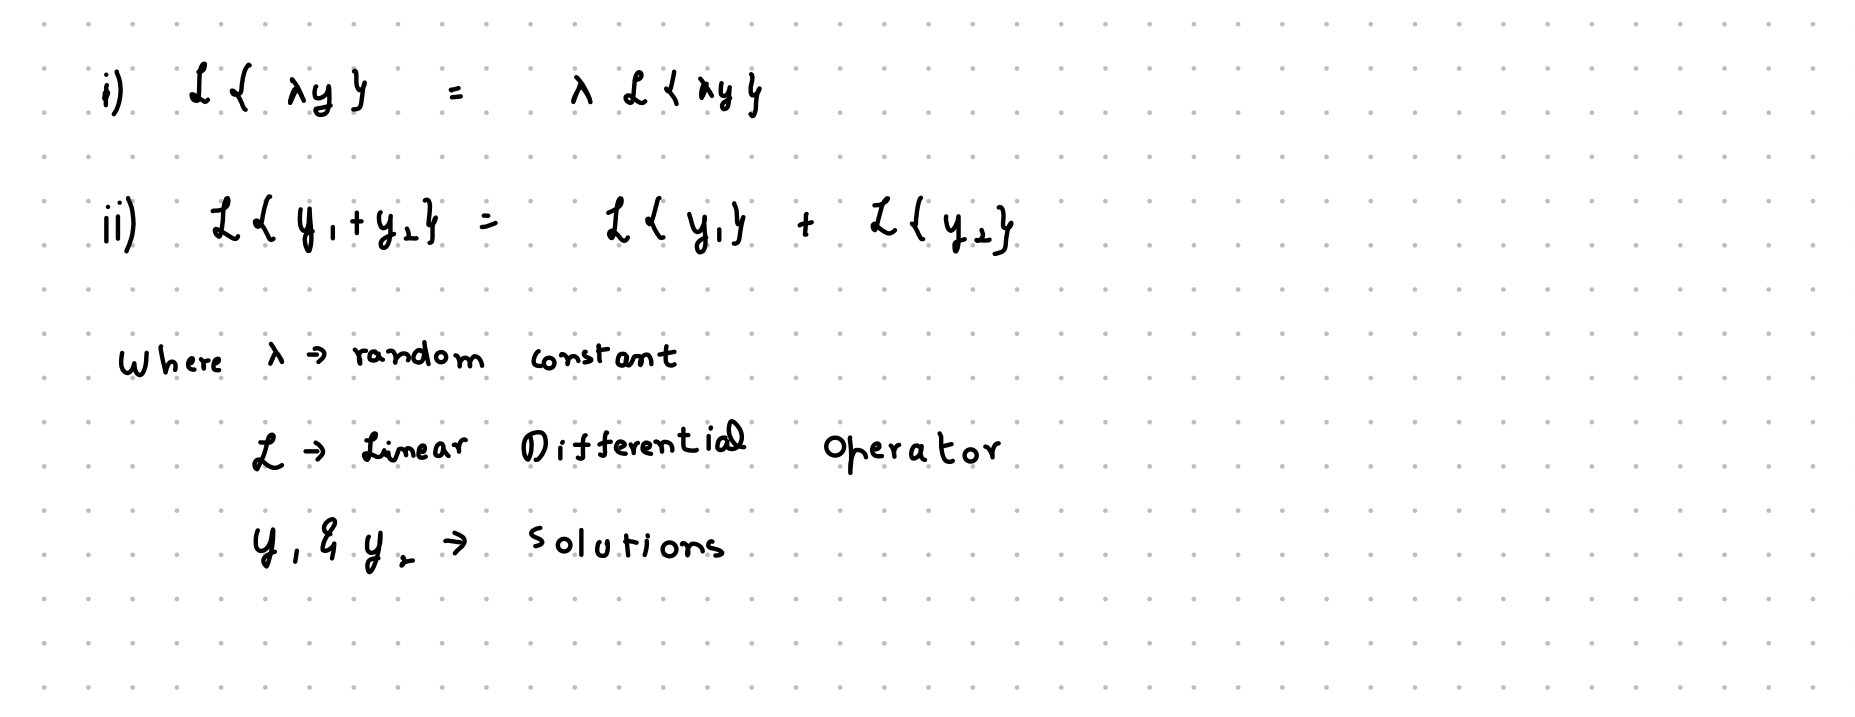 i) ℒ{ λy } = λ ℒ{ λy }
ii) ℒ{ y₁ + y₂ } = ℒ{ y₁ } + ℒ{ y₂ }
Where λ → random constant
ℒ → Linear Differential Operator
y₁ & y₂ → Solutions